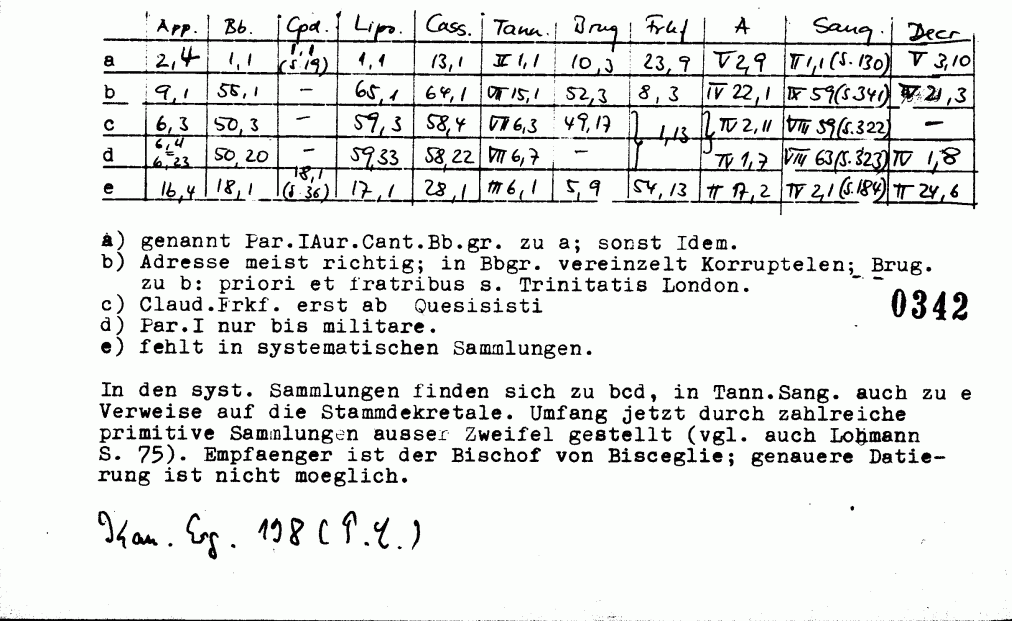 App. Bb. Cpd. Lips. Cass. Tann. Brug Frkf A Sang. Decr
a 2,4 1,1 1,1 (S.19) 1,1 13,1 II 1,1 10,3 23,9 V 2,9 II 1,1 (S.130) V 3,10
b 9,1 55,1 – 65,1 64,1 VII 15,1 52,3 8,3 IV 22,1 IX 59 (S.341) IV 21,3
c 6,3 50,3 – 59,3 58,4 VII 6,3 49,17 } 1,13 } IV 2,11 VIII 59 (S.322) –
d 6,4 = 6,23 50,20 – 59,33 58,22 VII 6,7 – IV 1,7 VIII 63 (S.323) IV 1,8
e 16,4 18,1 18,1 (S.36) 17,1 28,1 III 6,1 5,9 54,13 II 17,2 IV 2,1 (S.184) II 24,6
a) genannt Par.IAur.Cant.Bb.gr. zu a; sonst Idem.
b) Adresse meist richtig; in Bbgr. vereinzelt Korruptelen; Brug.
zu b: priori et fratribus s. Trinitatis London.
c) Claud.Frkf. erst ab Quesisisti
0342
d) Par.I nur bis militare.
e) fehlt in systematischen Sammlungen.
In den syst. Sammlungen finden sich zu bcd, in Tann.Sang. auch zu e
Verweise auf die Stammdekretale. Umfang jetzt durch zahlreiche
primitive Sammlungen ausser Zweifel gestellt (vgl. auch Lohmann
S. 75). Empfaenger ist der Bischof von Bisceglie; genauere Datie-
rung ist nicht moeglich.
Kan. Erg. 198 (P.L.)